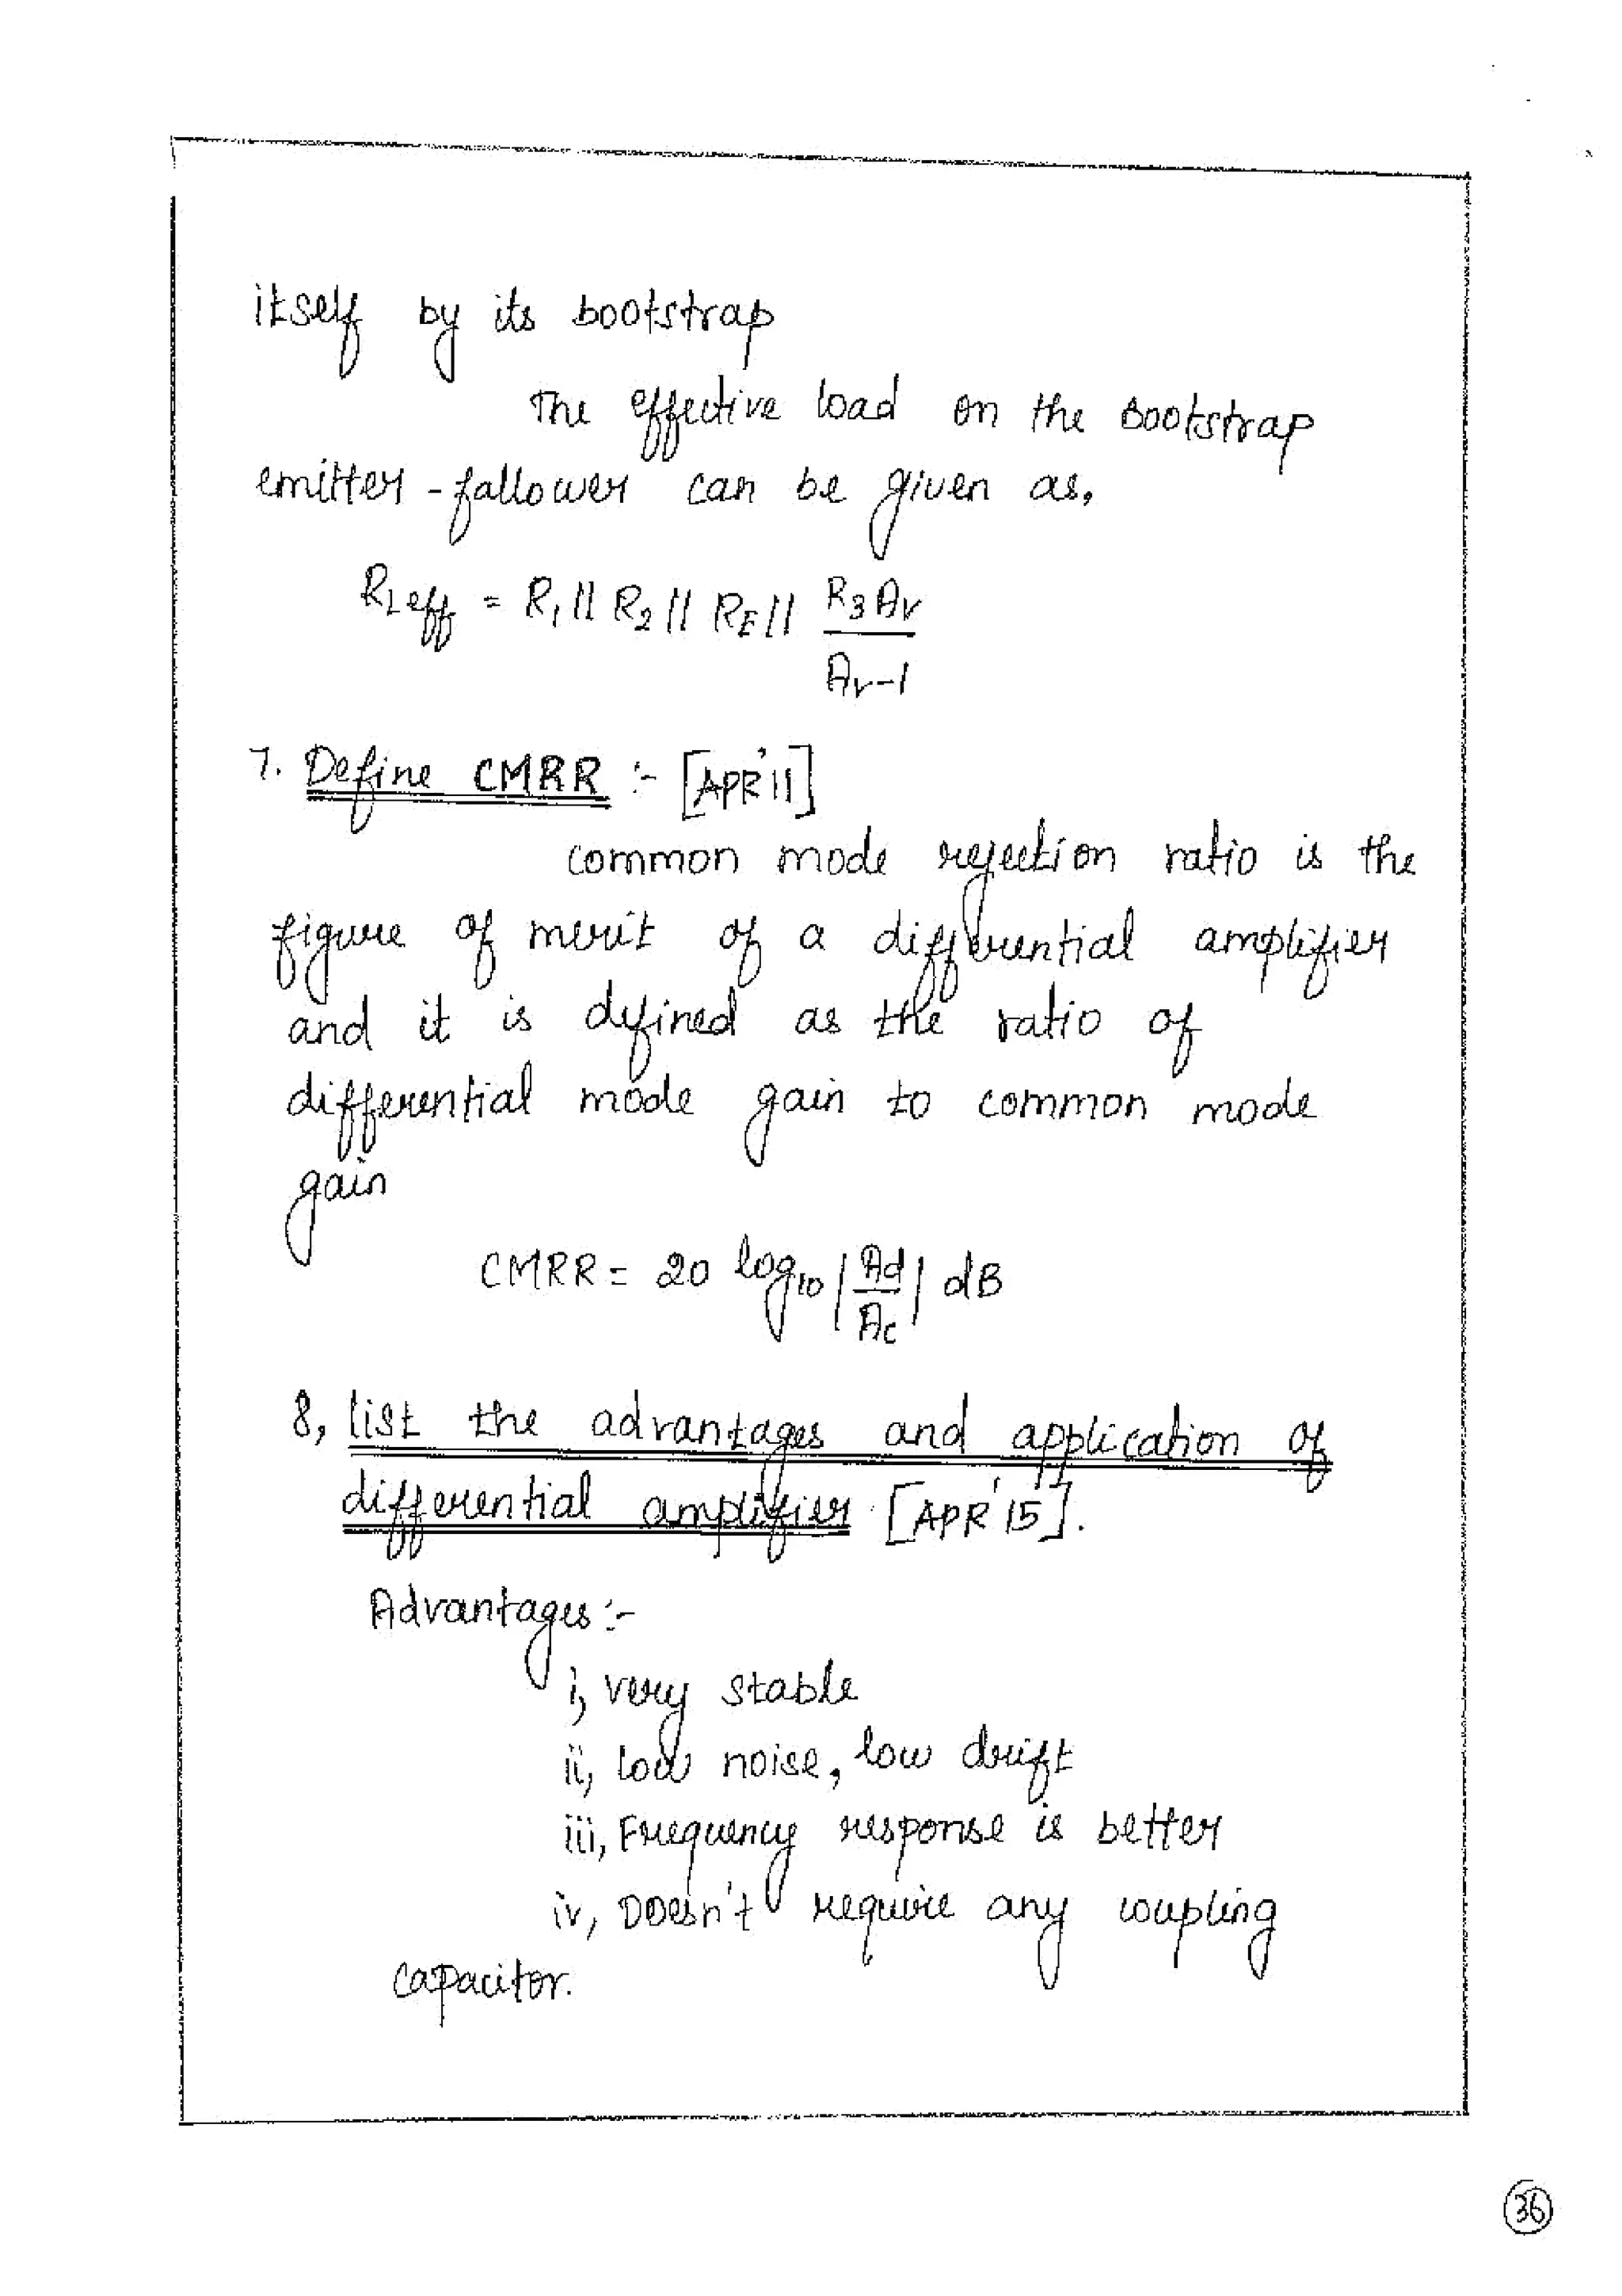 itself by its bootstrap
The effective load on the Bootstrap
emitter-fallower can be given as,
RLeff = R1 || R2 || RE || R3 Av
Av-1
7. Define CMRR :- [APR'11]
common mode rejection ratio is the
figure of merit of a differential amplifier
and it is defined as the ratio of
differential mode gain to common mode
gain
CMRR = 20 log10 |Ad| dB
Ac
8, list the advantages and application of
differential amplifier [APR'15].
Advantages :-
i, very stable
ii, low noise, low drift
iii, Frequency response is better
iv, Doesn't require any coupling
capacitor.
36